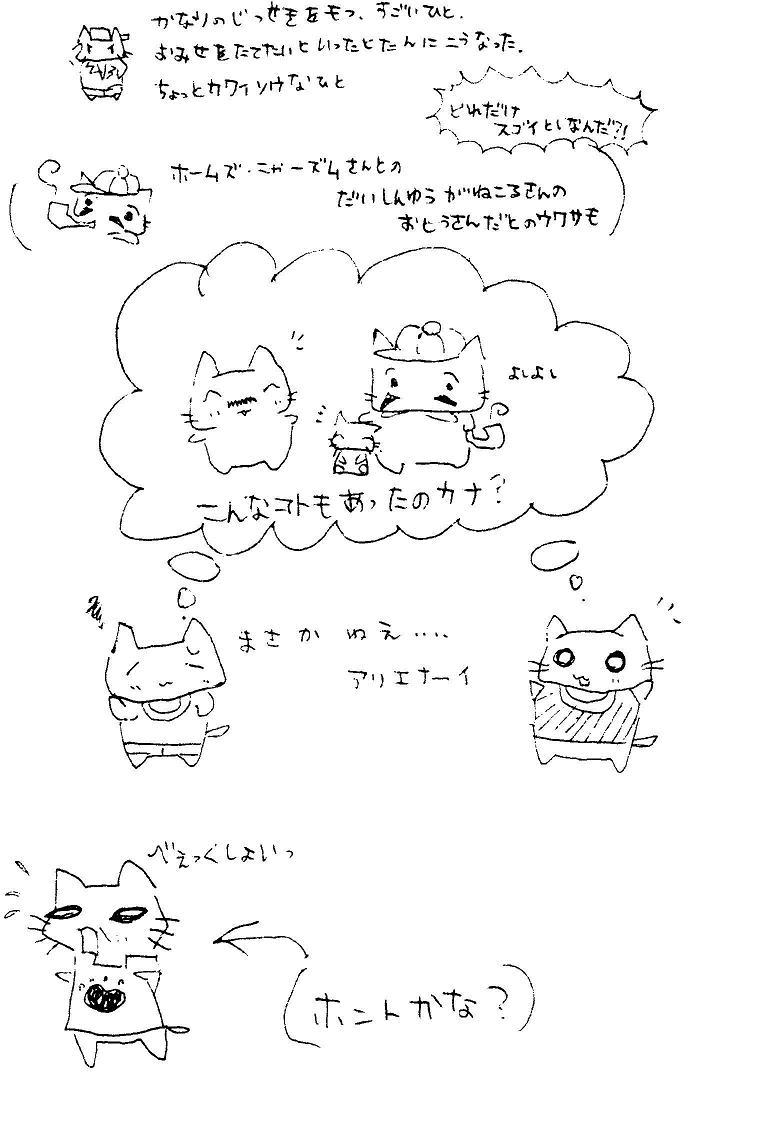 かなりのじっせきをもつ、すごいひと.
よみせをたてたいといったとたんにこうなった.
ちょっとカワイソウなひと
どれだけ
スゴイヒトなんだ?!
ホームズ・ニャーズムさんとの
だいしんゆう がねころさんの
おとうさんだとのウワサも
よしよし
こんなコトもあったのカナ?
まさかねえ....
アリエナーイ
べぇっくしょいっ
(ホントかな?)